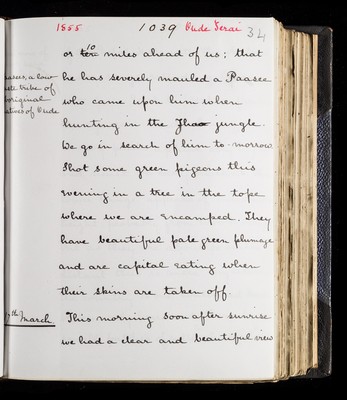 1855 1039 Oude Terai 34
or ten 10 miles ahead of us; that
he has severely mauled a Paasee
who came upon him when
hunting in the Jhao jungle.
We go in search of him to-morrow
Shot some green pigeons this
evening in a tree in the tope
where we are encamped. They
have beautiful pale green plumage
and are capital eating when
their skins are taken off.
This morning soon after sunrise
we had a clear and beautiful view
a low
tribe of
Oude
th March